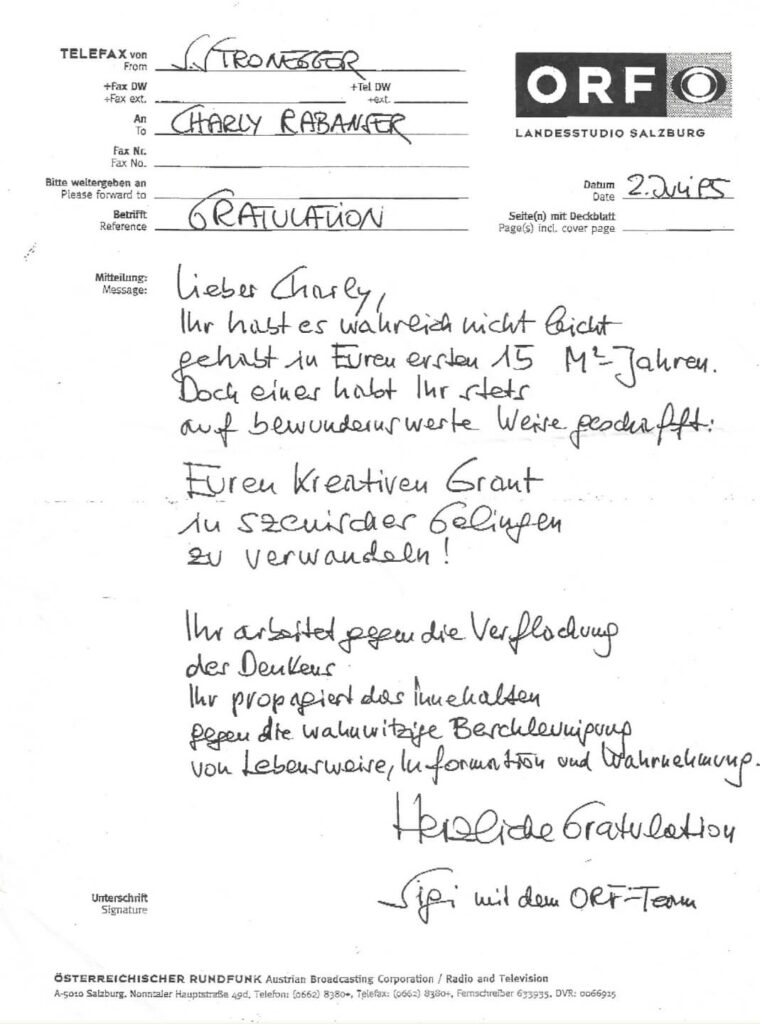 TELEFAX von S. STRONEGGER
From
+Fax DW +Tel DW
+Fax ext. +ext.
An CHARLY RABANSER
To
Fax Nr.
Fax No.
Bitte weitergeben an
Please forward to
Betrifft GRATULATION
Reference
ORF
LANDESSTUDIO SALZBURG
Datum 2. Juli
Date
Seite(n) mit Deckblatt
Page(s) incl. cover page
Mitteilung:
Message:
Lieber Charly,
Ihr habt es wahrlich nicht leicht
gehabt in Euren ersten 15 M²-Jahren.
Doch eines habt Ihr stets
auf bewundernswerte Weise geschafft:
Euren kreativen Grant
in szenisches Gelingen
zu verwandeln!
Ihr arbeitet gegen die Verflachung
des Denkens
Ihr propagiert das Innehalten
gegen die wahnwitzige Beschleunigung
von Lebensweise, Information und Wahrnehmung.
Herzliche Gratulation
Unterschrift Sigi mit dem ORF-Team
Signature
ÖSTERREICHISCHER RUNDFUNK Austrian Broadcasting Corporation / Radio and Television
A-5010 Salzburg, Nonntaler Hauptstraße 49d, Telefon: (0662) 8380+, Telefax: (0662) 8380+, Fernschreiber 633935, DVR: 0066915